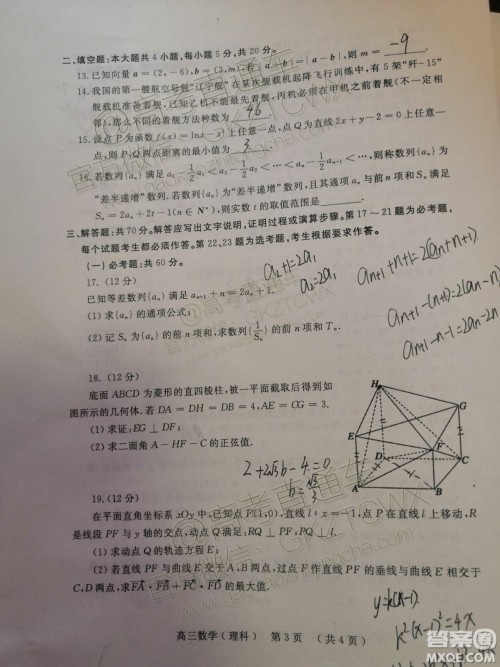 二、填空题:本大题共4小题,每小题5分,共20分。
13.已知向量a=(2,-6),b=(3,m),若|a+b|=|a-b|,则m= -9
14.我国的第一艘航空母舰“辽宁舰”在某次舰载机起降飞行训练中,有5架“歼-15”
舰载机准备着舰,已知乙机不能最先着舰,丙机必须在甲机之前着舰(不一定相
邻),那么不同的着舰方法种数为 46
15.设点P为函数f(x)=lnx-x³上任意一点,点Q为直线2x+y-2=0上任意一
点,则P,Q两点距离的最小值为
16.若数列{aₙ}满足
“差半递增”数列.若数列{aₙ}为“差半递增”数列,且其通项aₙ与前n项和Sₙ满足
Sₙ=2aₙ+2t-1(n∈N*),则实数t的取值范围是
三、解答题:共70分。解答应写出文字说明、证明过程或演算步骤。第17~21题为必考题,
每个试题考生都必须作答。第22、23题为选考题,考生根据要求作答。
(一)必考题:共60分。
17.(12分)
a₂+1=2a₁
a₂=2a₁
已知等差数列{aₙ}满足aₙ₊₁+n=2aₙ+1.
(1)求{aₙ}的通项公式;
(2)记Sₙ为{aₙ}的前n项和,求数列{1/Sₙ}的前n项和Tₙ.
18.(12分)
底面ABCD为菱形的直四棱柱,被一平面截取后得到如
图所示的几何体.若DA=DH=DB=4,AE=CG=3.
(1)求证:EG⊥DF;
(2)求二面角A-HF-C的正弦值.
H
G
E
F
D
C
A
B
19.(12分)
在平面直角坐标系xOy中,已知点F(1,0),直线l:x=-1,点P在直线l上移动,R
是线段PF与y轴的交点,动点Q满足:RQ⊥PF,PQ⊥l.
(1)求动点Q的轨迹方程E;
(2)若直线PF与曲线E交于A,B两点,过点F作直线PF的垂线与曲线E相交于
C,D两点,求FA·FB+FC·FD的最大值.
y=k(x-1)
k²(x-1)²=4x
高三数学(理科) 第3页 (共4页)
答案圈
MXQE.COM